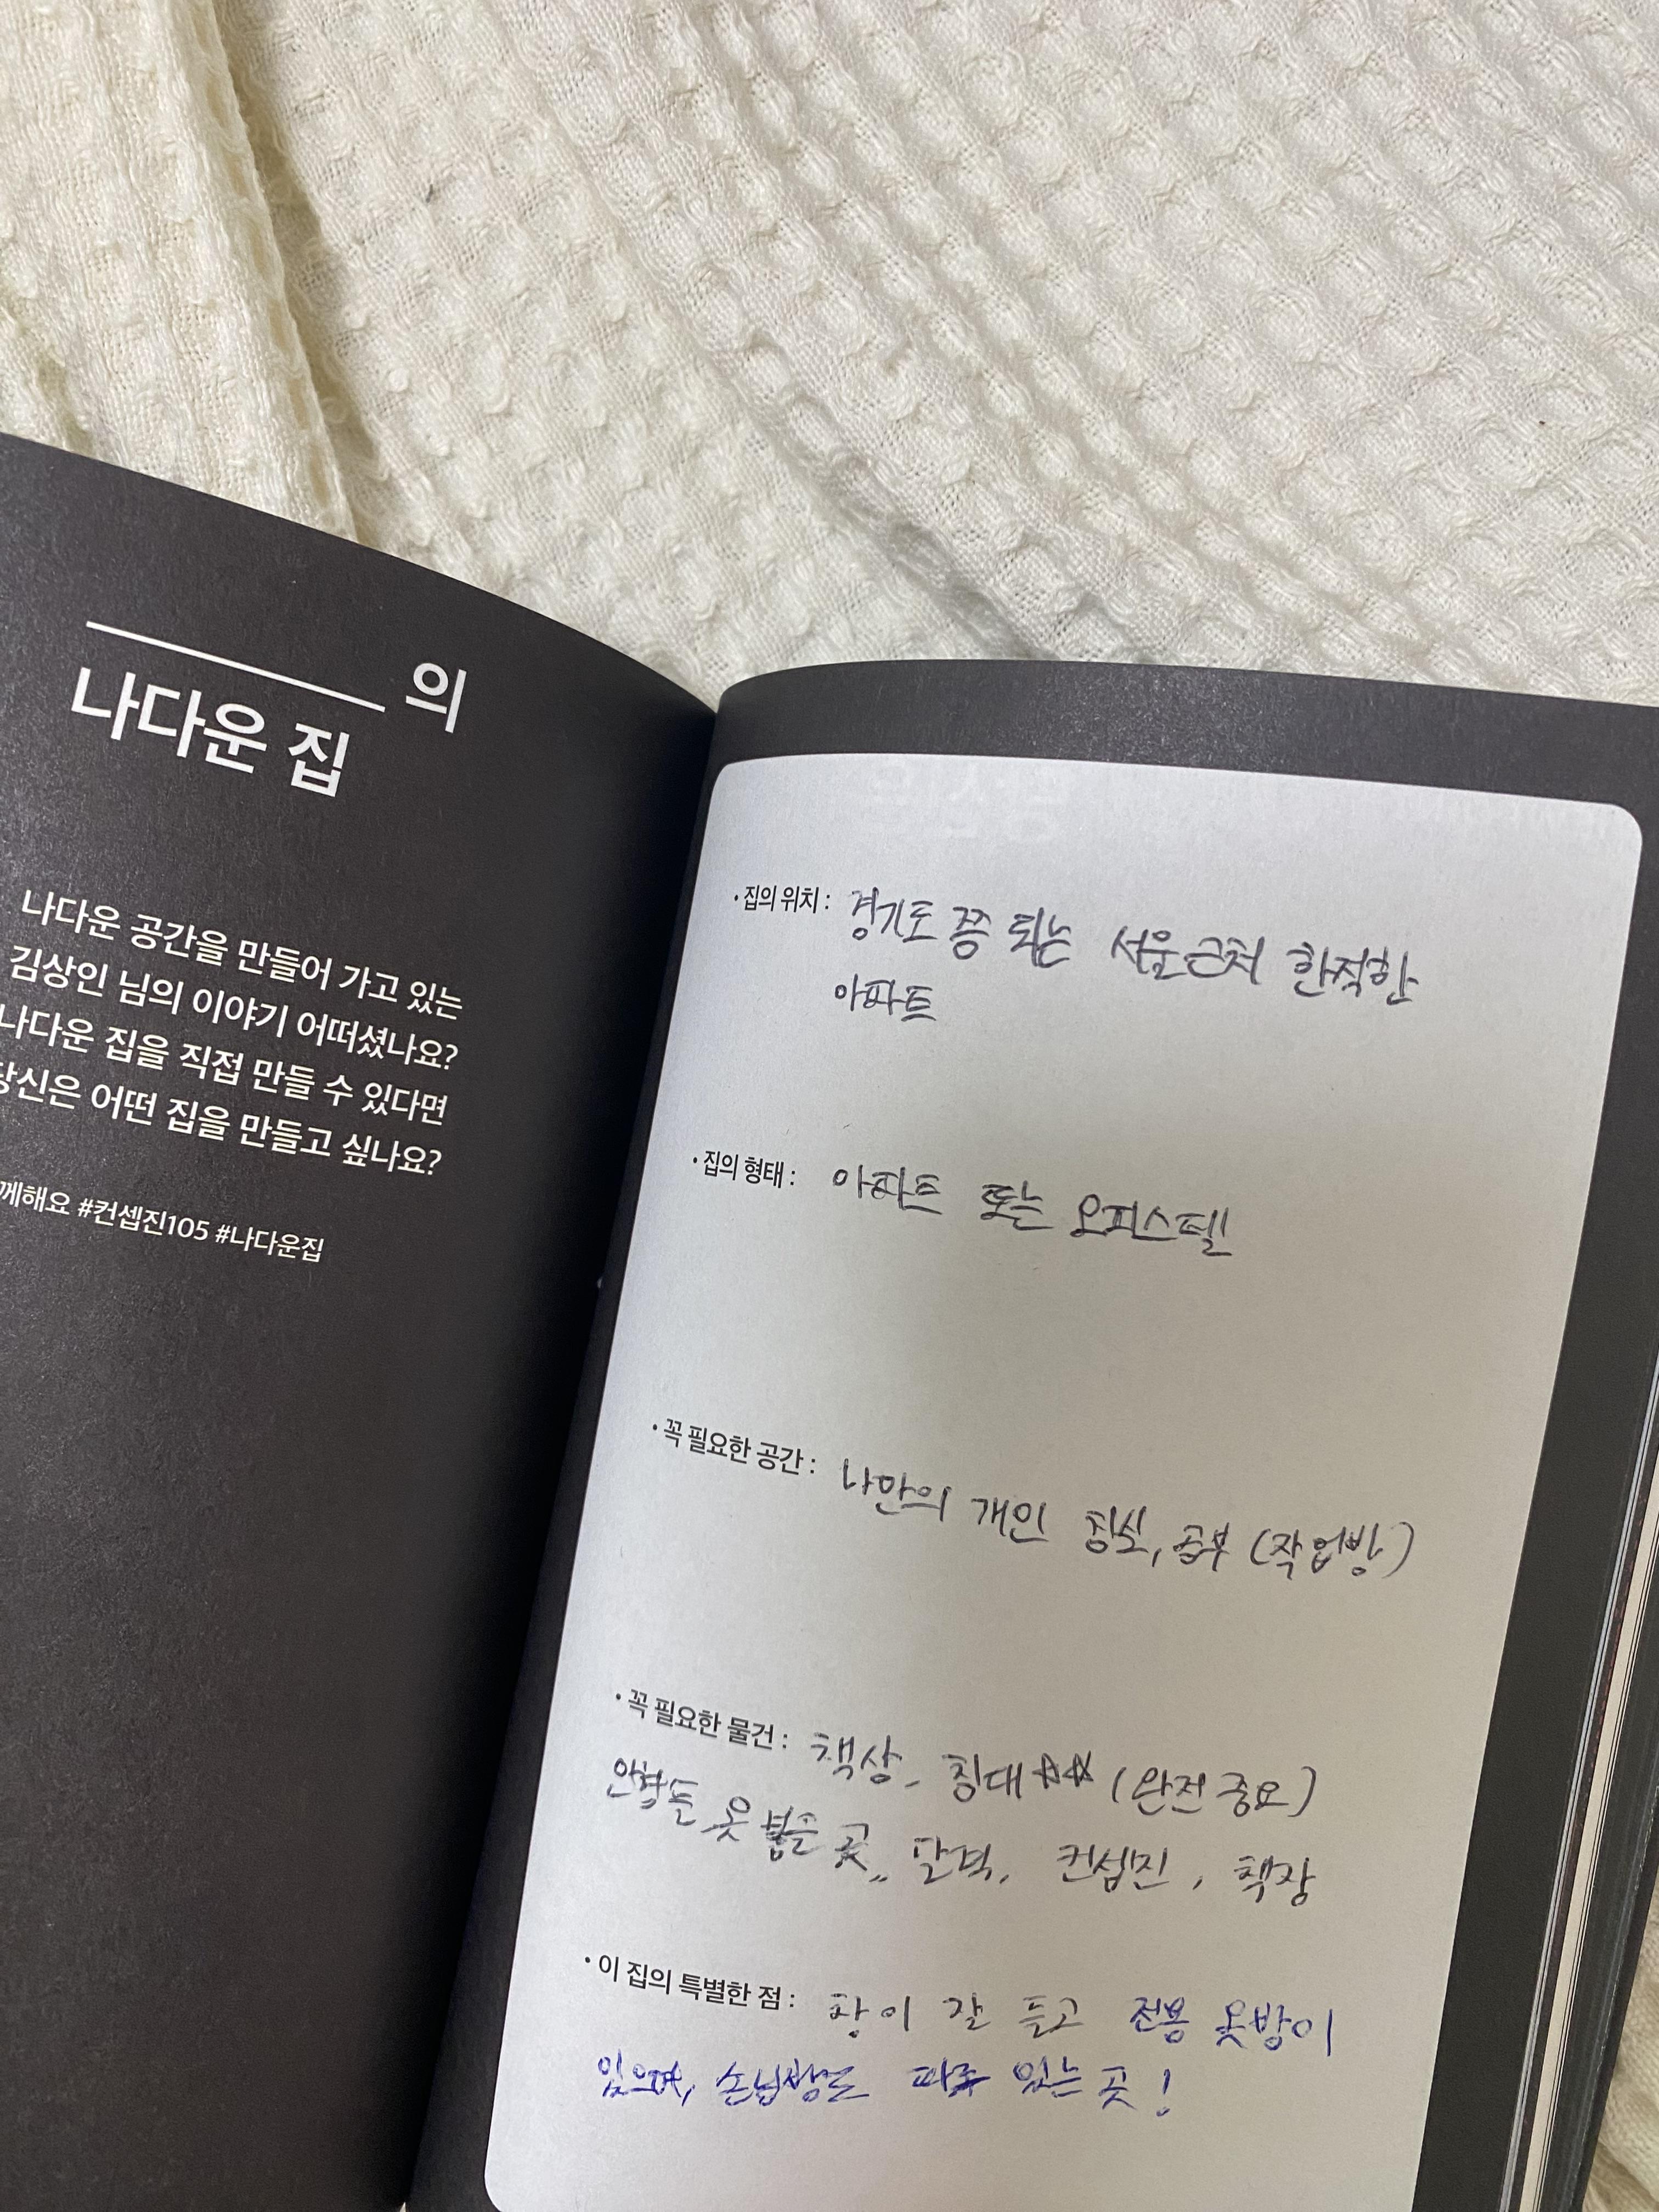 의
나다운 집
나다운 공간을 만들어 가고 있는
김상인 님의 이야기 어떠셨나요?
나다운 집을 직접 만들 수 있다면
당신은 어떤 집을 만들고 싶나요?
께해요 #컨셉진105 #나다운집
· 집의 위치 : 경기도 쯤 되는 서울근처 한적한
아파트
· 집의 형태 : 아파트 또는 오피스텔
· 꼭 필요한 공간 : 나만의 개인 침실, 공부 (작업방)
· 꼭 필요한 물건 : 책상, 침대 ☆☆ (완전 중요)
옷 곳,, 달력, 컨셉진, 책장
· 이 집의 특별한 점 : 창이 잘 들고 전용 옷방이
있으며, 손님방도 따로 있는 곳!